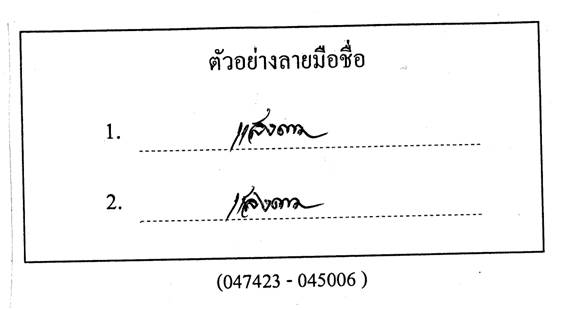 ตัวอย่างลายมือชื่อ
1. แสงดาว
2. แสงดาว
(047423 - 045006 )